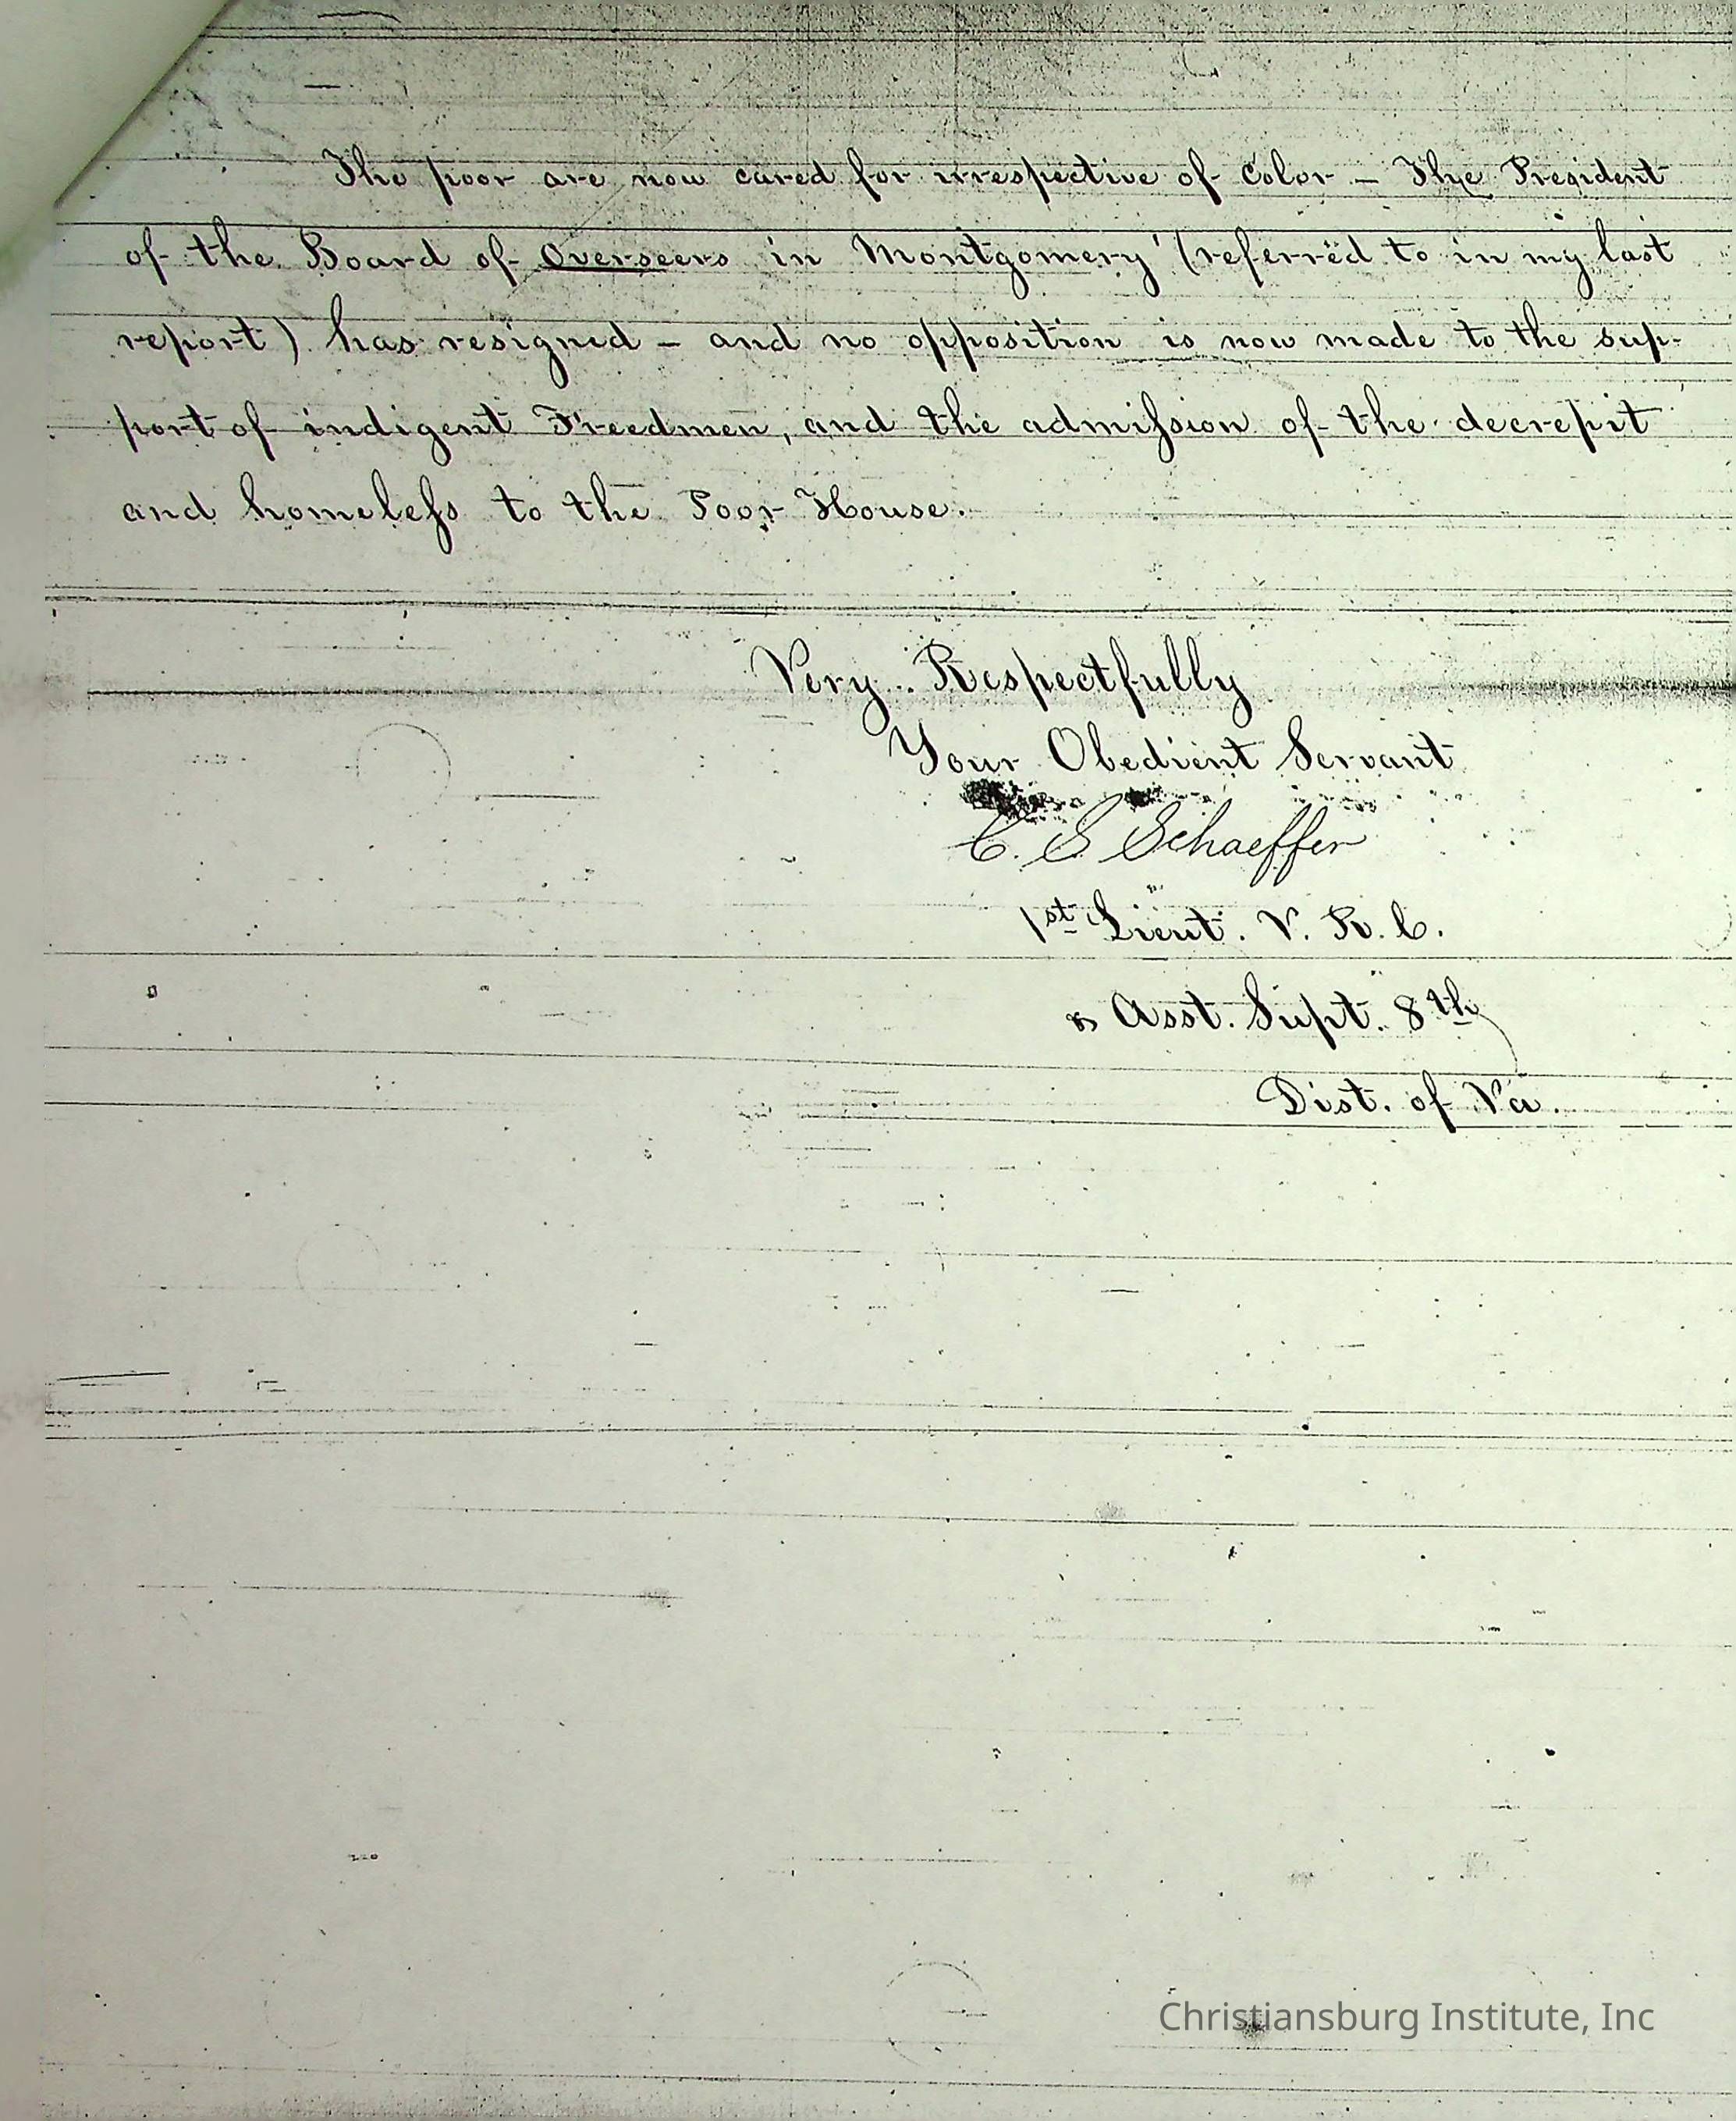 The poor are now cared for irrespective of Color – The President
of the Board of Overseers in Montgomery (referred to in my last
report) has resigned – and no opposition is now made to the sup-
port of indigent Freedmen, and the admiſsion of the decrepit
and homeleſs to the Poor House.
Very Respectfully
Your Obedient Servant
C. S Schaeffer
1st Lieut. V. R. C.
& Asst. Supt. 8th
Dist. of Va.
Christiansburg Institute, Inc